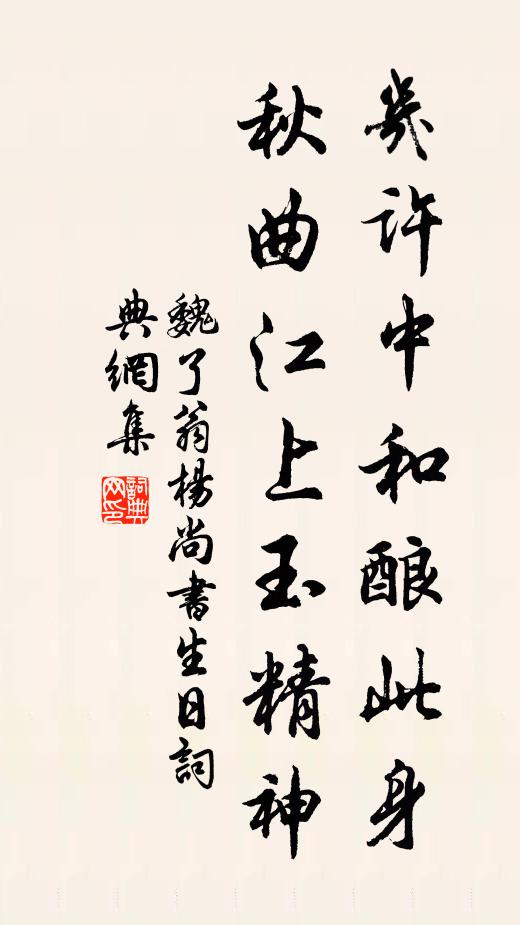 幾许中和酿此身
秋曲江上玉精神
魏了翁楊尚書生日詞
典網集
詞典
网印